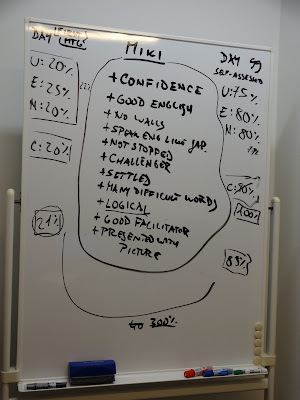 MIKI
DAY
MTG
U: 20%
E: 25%
N: 20%
C: 20%
21%
+ CONFIDENCE
+ GOOD ENGLISH
+ NO WALLS
+ SPEAK ENG LIKE JAP.
+ NOT STOPPED
+ CHALLENGER
+ SETTLED
+ MANY DIFFICULT WORDS
+ LOGICAL
+ GOOD FACILITATOR
+ PRESENTED WITH
PICTURE
DAY 99
SELF-ASSESSED
U: 75%
E: 80%
N: 80%
C: 90%
100%
300%